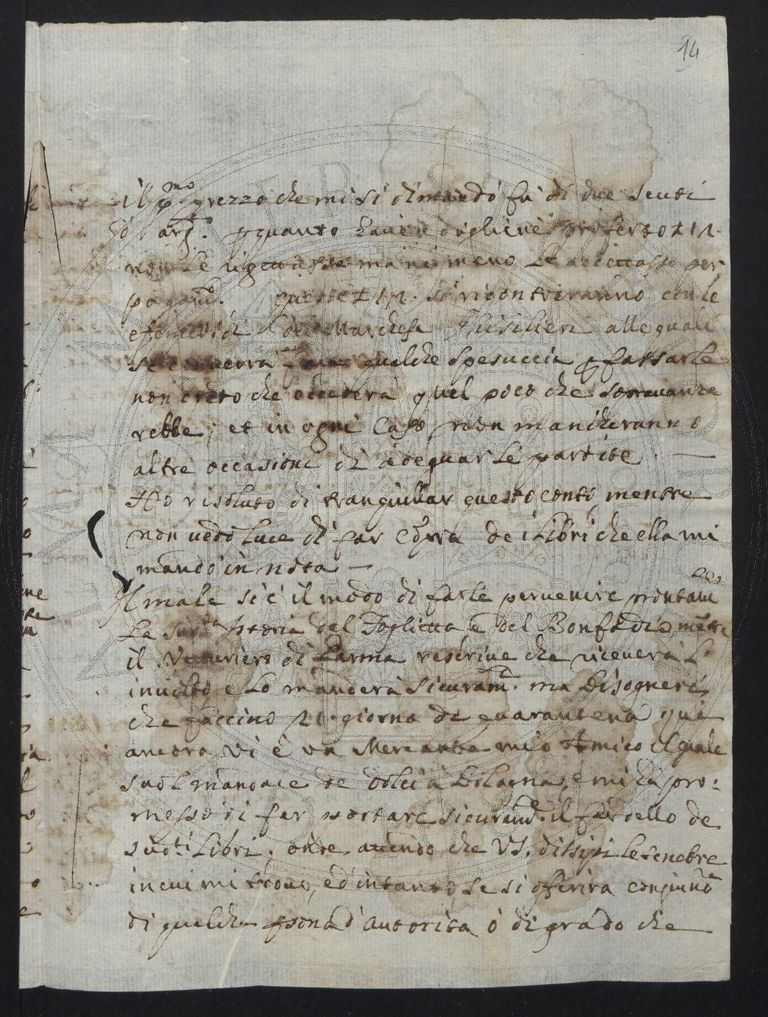 14
Il p.mo prezzo che mi si dimandò fù di due scuti
d'arg.to p quanto havendogliene proferto £ 12
non le rigettasse ma ne meno le accettasse per
pagam.to queste £ 12. si rincontreranno con le
del Marchese alle quali
qualche spesuccia p fassarle
non credo che eccederà quel poco che soravanza
rebbe; et in ogni caso non mancheranno
altre occasioni di adeguar le partite. —
Hò risoluto di tranquillar questi conti, mentre
non vedo luce di far copia de i libri che ella mi
mandò in nota —
Il male si è il modo di farle pervenire prontam
La sud.ta Istoria del Foglietta e del Bonfadio mentre
il Vetturiero di Parma rescrive che riceverà l'
involto e lo manderà sicuram.te ma bisognerà
che faccino 20 giorna di quarantena quì
ancora vi è un Mercante mio Amico il quale
suol mandare de dolci à Bologna, e mi dà pro:
messo di far portare sicuram.te il fardello de
sud.ti libri, onde attendo che VS. dissipi le tenebre
in cui mi trovo, ed intanto se si offerirà congiunt.a
di qualche psona d'autorità ò di grado che